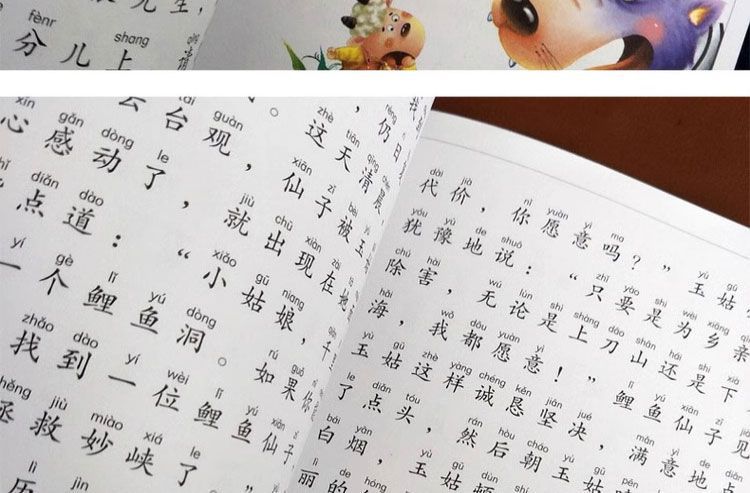 fènr shang
分儿上
zhè tiān
这天
tái guàn xiān zǐ bèi
台观，仙子被玉
xīn gǎn dòng le jiù chū xiàn zài
心感动了，就出现在
diǎn dào xiǎo gū niang
点道：“小姑娘，
yí gè lǐ yú dòng rú guǒ
一个鲤鱼洞。如果你
zhǎo dào yí wèi lǐ yú
找到一位鲤鱼仙子
zhěng jiù miào xiá le
拯救妙峡了。”
dài jià nǐ yuàn yì ma yù gū
代价，你愿意吗？”玉姑
yóu yù de shuō zhǐ yào shì wèi xiāng qīn
犹豫地说：“只要是为乡亲
chú hài wú lùn shì shàng dāo shān hái shì xià
除害，无论是上刀山还是下
hǎi wǒ dōu yuàn yì lǐ yú xiān zǐ
海，我都愿意！”鲤鱼仙子见
yù gū zhè yàng chéng kěn jiān jué mǎn yì de
玉姑这样诚恳坚决，满意地点
le diǎn tóu rán hòu cháo yù gū
了点头，然后朝玉姑
bái yān yù gū dùn
白烟，玉姑顿
lì de
丽的